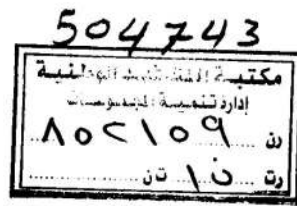 504743
مكتبة الملك فهد الوطنية
إدارة تنمية المجموعات
رن ٨٥٢١٥٩
رت ١٠ ن تن